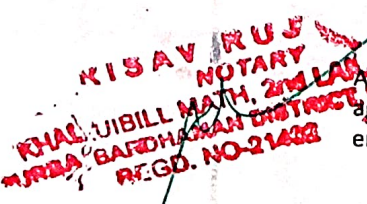 KISAV RUJ
NOTARY
KHAL UIBILL MATH, 2nd LAN
BARDHAMAN DISTRICT
REGD. NO-214